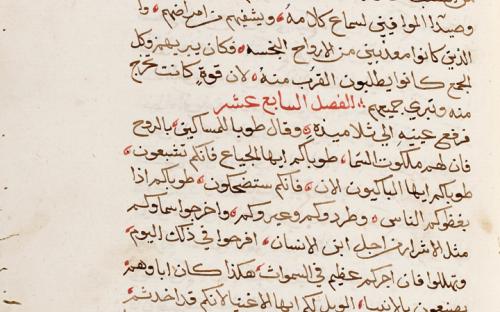 وصيدا الموافيين لسماع كلامه ويشفيهم من امراضهم وا
الذين كانوا معذبين من الارواح النجسه فكان يبريهم وكل
الجمع كانوا يطلبون القرب منه لان قوة كانت تخرج
منه وتبري جميعهم الفصل السابع عشر
فرفع عينيه الي تلاميذه وقال طوبا للمساكين بالروح
فان لهم ملكوت السما طوباكم ايها الجياع فانكم تشبعون
طوباكم ايها الباكيون الان فانكم ستضحكون طوباكم اذا
بغضوكم الناس وطردوكم وعيروكم واخرجوا سماوكم
مثل الاشرار من اجل ابن الانسان افرحوا في ذلك اليوم
وتهللوا فان اجركم عظيم في السموات هكذا كان اباوهم
يصنعون بالانبيا الويل لكم ايها الاغنيا لانكم قد اخذتم